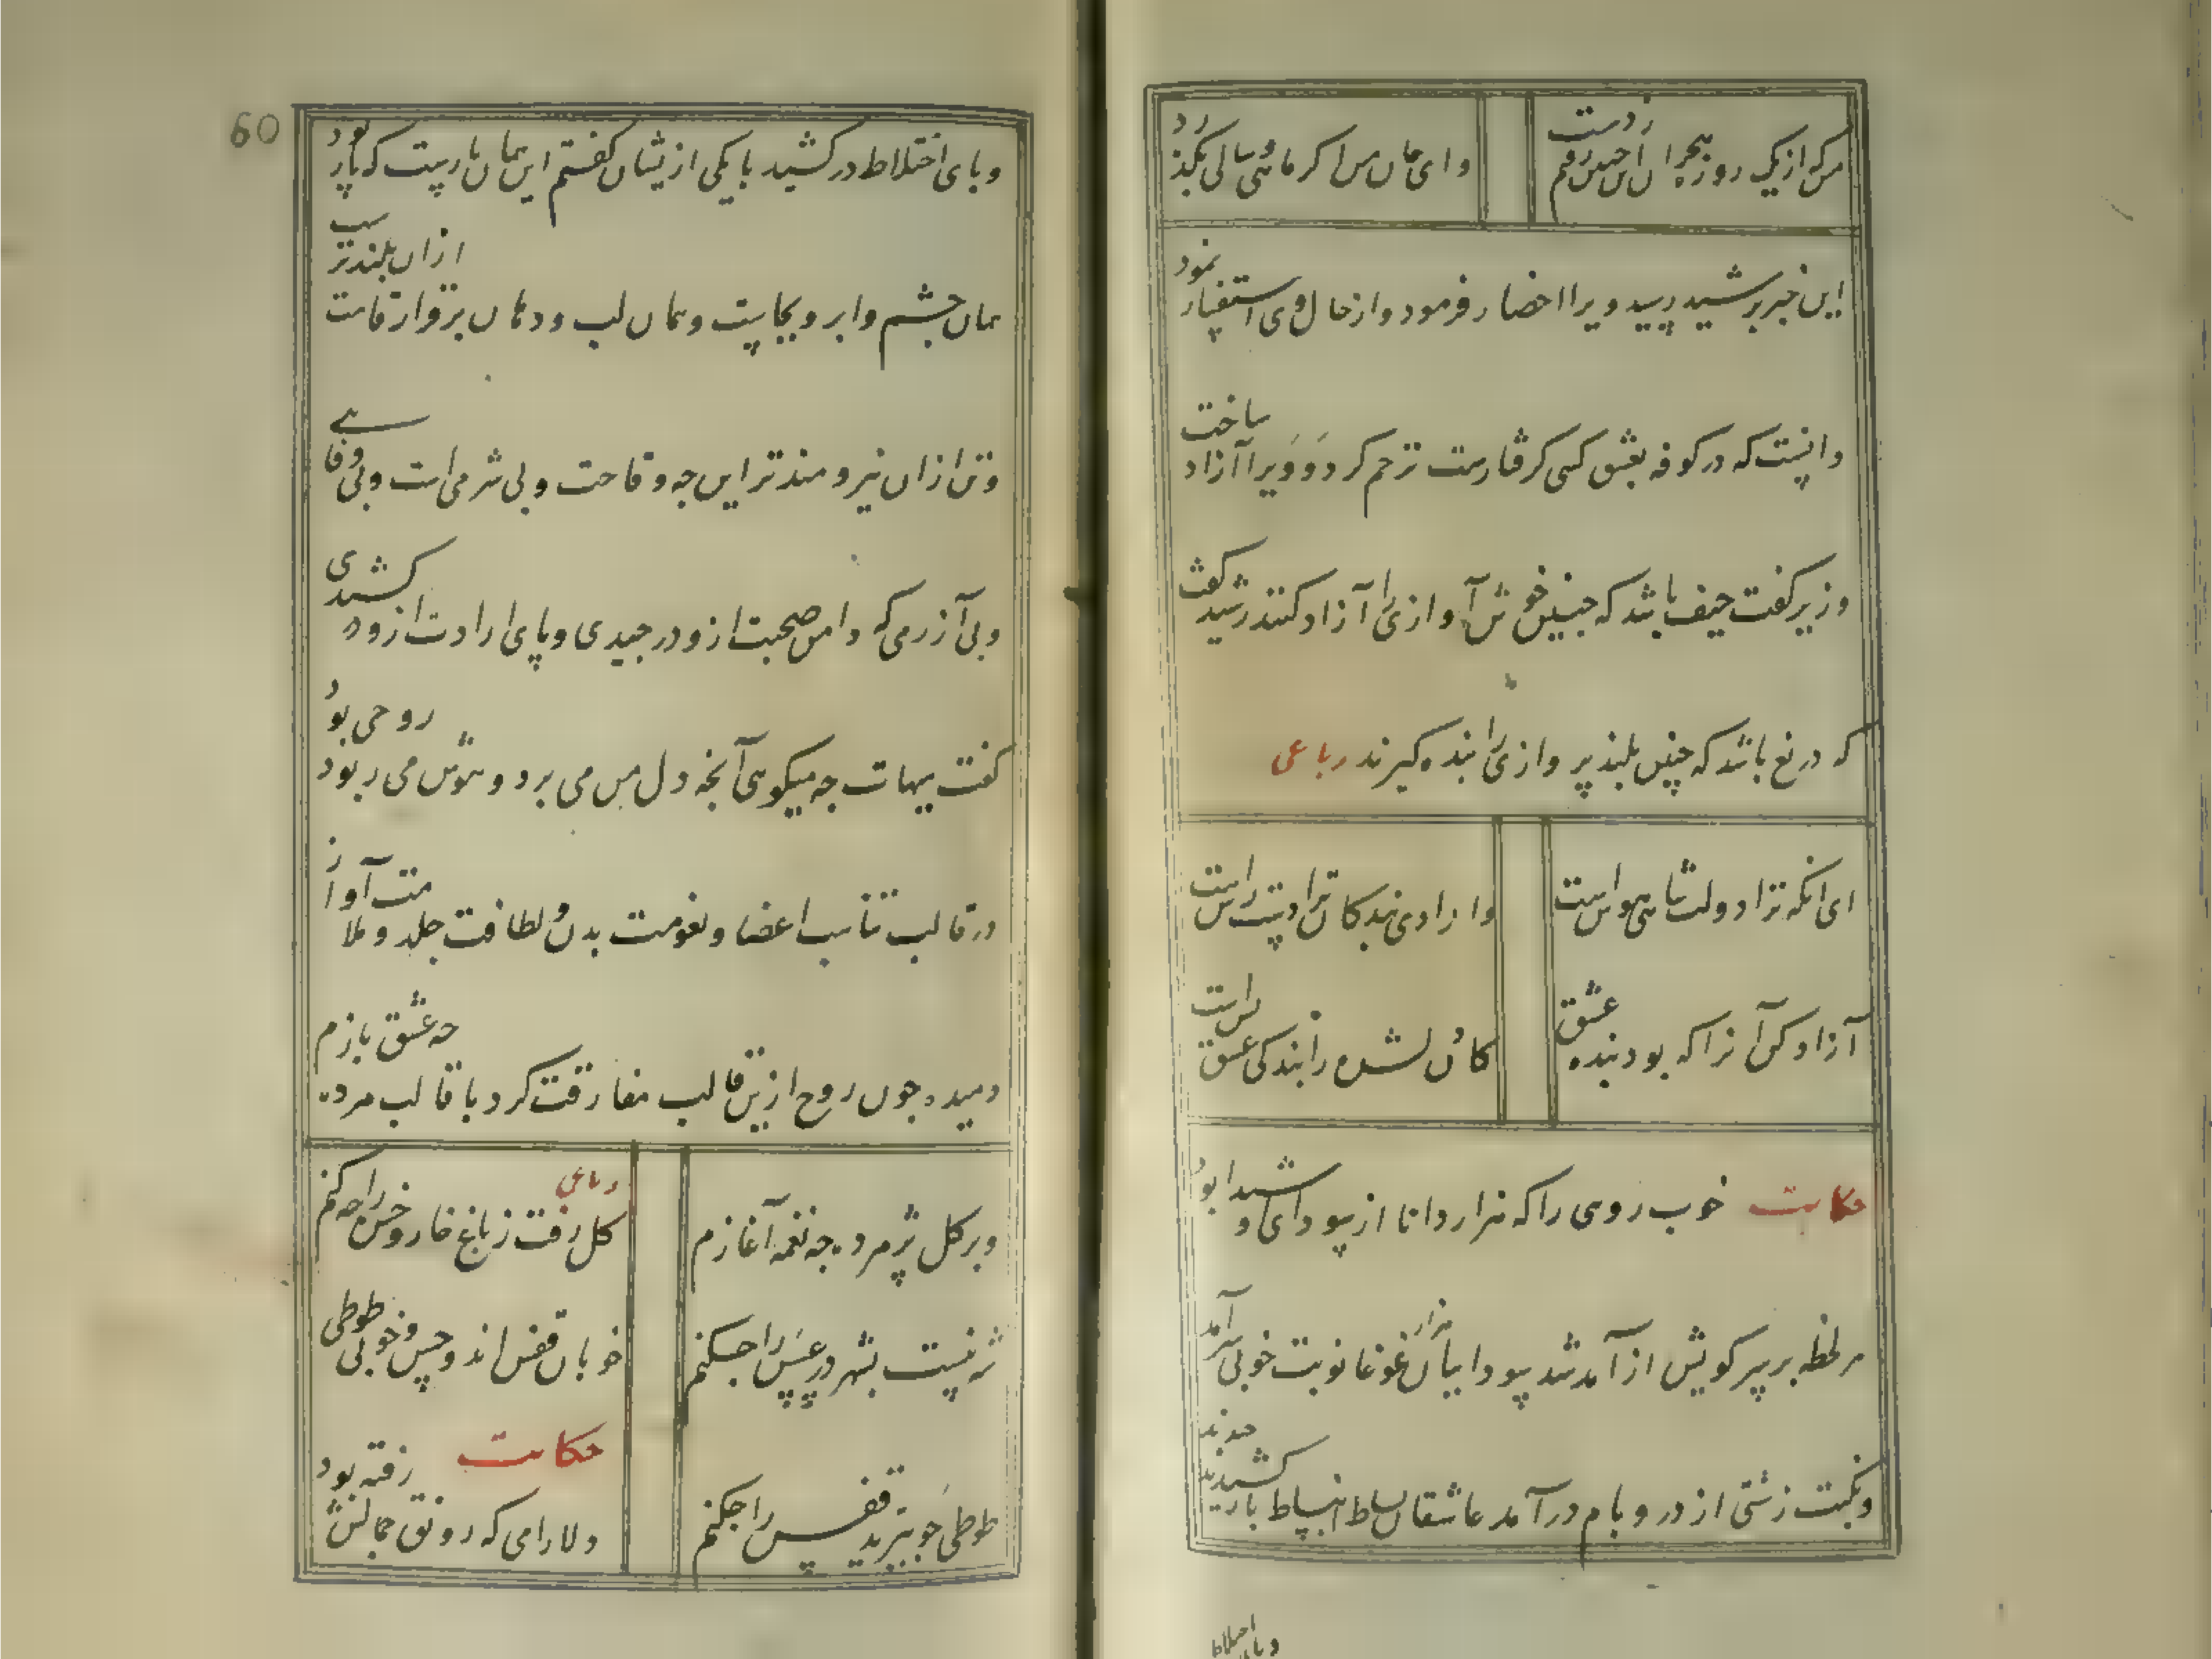 من که از یک روزه هجران اینچنین رفتم ز دست
وای جان من اگر ماهی و سالی بگذرد
این خبر برشید رسید ویرا احضار فرمود و از حال وی استفسار نمود
دانست که در کوفه بعشق کسی گرفتارست ترحم کرد و ویرا آزاد ساخت
وزیر گفت حیف باشد که چنین خوش آوازی را آزاد کنند رشید گفت
که دریغ باشد که چنین بلند پروازی را بنده گیرند رباعی
ای انکه ترا دولت شاهی هواست
وازادی بندگان ترا دست رس است
آزاد کن آنرا که بود بنده عشق
کان دلشده را بندگی عشق بس است
حکایت خوب روی را که هزار دانا از سودای او شیدا بود
هر لحظه بر سر کویش از آمد شد سوداییان هزار غوغا نوبت خوبی بسر آمد
و نکبت زشتی از در و بام در آمد عاشقان بساط انبساط باز چیدند
وپای اختلاط
وپای اختلاط در کشیدند با یکی از ایشان گفتم این همان یارست که پار بود
همان چشم و ابرو بجایست و همان لب و دهان برقرار قامت ازان بلندترست
وتن ازان نیرومندتر این چه وقاحت و بی شرمی است و بی وفایی
و بی آزرمی که دامن صحبت ازو در چیدی و پای ارادت ازو در کشیدی
گفت هیهات چه میگویی آنچه دل من می برد و هوش من می ربود روحی بود
در قالب تناسب اعضا و نعومت بدن و لطافت جلد و ملامت آواز
دمیده چون روح ازین قالب مفارقت کرد با قالب مرده چه عشق بازم
و بر گل پژمرده چه نغمه آغازم
رباعی
گل رفت ز باغ خار و خس را چه کنم
شه نیست بشهر در عسس را چکنم
خوبان قفس اند و حسن و خوبی طوطی
طوطی چو بپرید قفس را چکنم
حکایت
دلارامی که رونق جمالش رفته بود
60